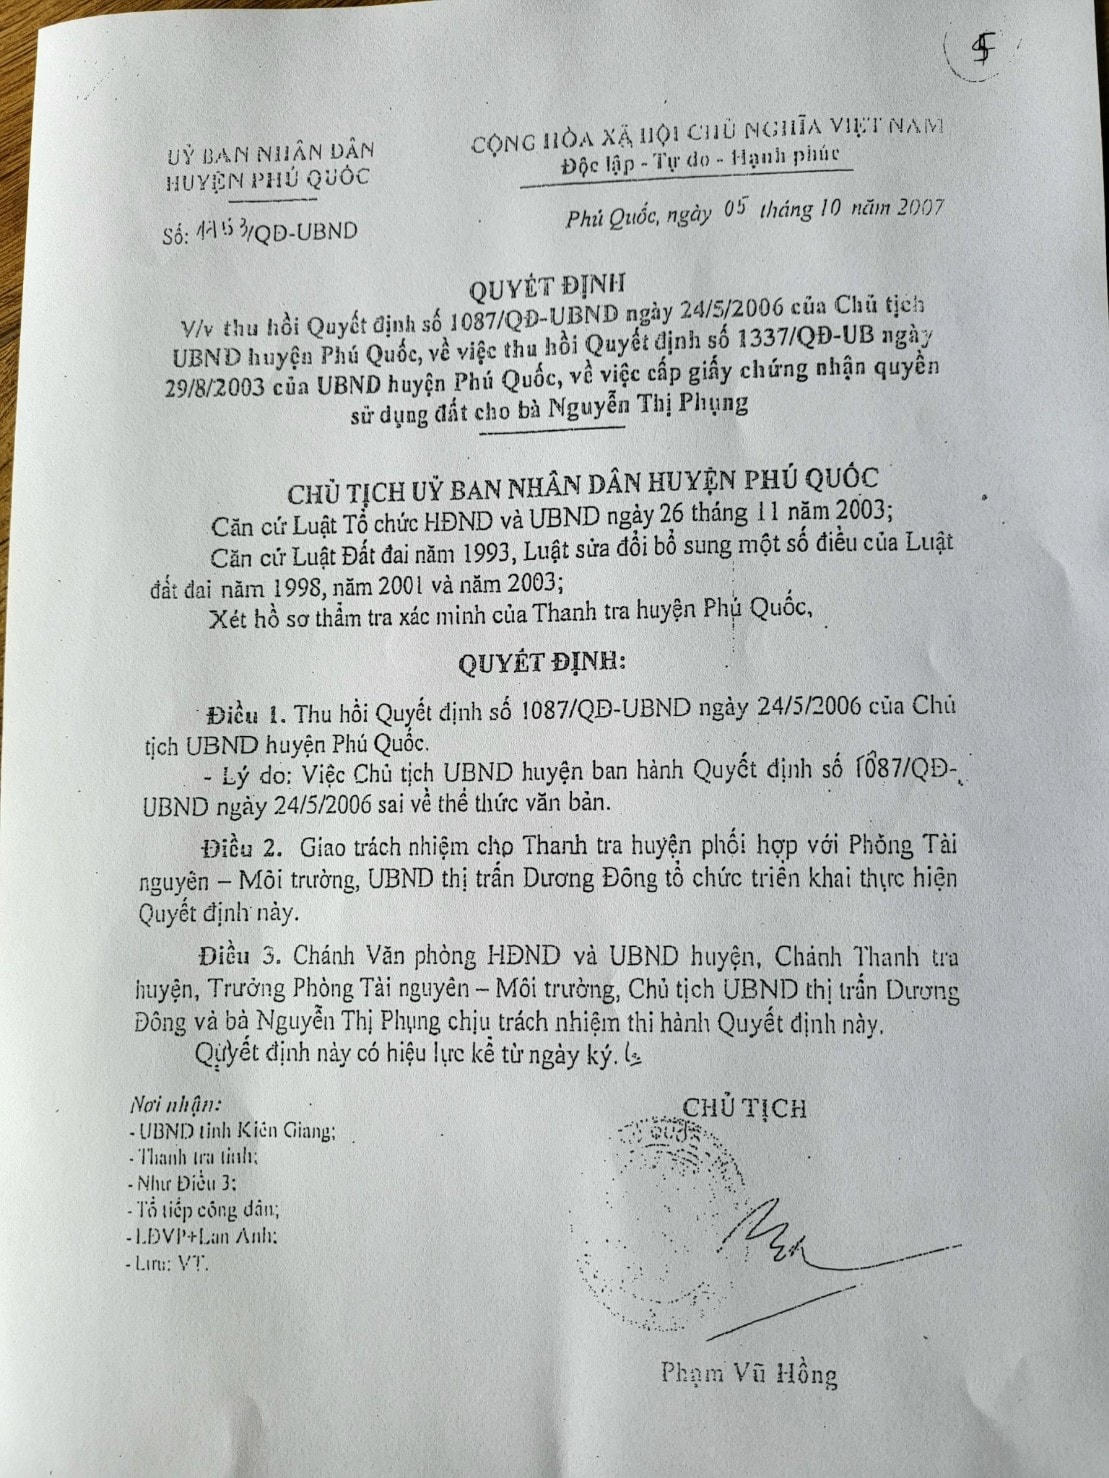 UỶ BAN NHÂN DÂN
HUYỆN PHÚ QUỐC
Số: /QĐ-UBND
CỘNG HÒA XÃ HỘI CHỦ NGHĨA VIỆT NAM
Độc lập - Tự do - Hạnh phúc
Phú Quốc, ngày 05 tháng 10 năm 2007
QUYẾT ĐỊNH
V/v thu hồi Quyết định số 1087/QĐ-UBND ngày 24/5/2006 của Chủ tịch
UBND huyện Phú Quốc, về việc thu hồi Quyết định số 1337/QĐ-UB ngày
29/8/2003 của UBND huyện Phú Quốc, về việc cấp giấy chứng nhận quyền
sử dụng đất cho bà Nguyễn Thị Phụng
CHỦ TỊCH UỶ BAN NHÂN DÂN HUYỆN PHÚ QUỐC
Căn cứ Luật Tổ chức HĐND và UBND ngày 26 tháng 11 năm 2003;
Căn cứ Luật Đất đai năm 1993, Luật sửa đổi bổ sung một số điều của Luật
đất đai năm 1998, năm 2001 và năm 2003;
Xét hồ sơ thẩm tra xác minh của Thanh tra huyện Phú Quốc,
QUYẾT ĐỊNH:
Điều 1. Thu hồi Quyết định số 1087/QĐ-UBND ngày 24/5/2006 của Chủ
tịch UBND huyện Phú Quốc.
- Lý do: Việc Chủ tịch UBND huyện ban hành Quyết định số 1087/QĐ-
UBND ngày 24/5/2006 sai về thể thức văn bản.
Điều 2. Giao trách nhiệm cho Thanh tra huyện phối hợp với Phòng Tài
nguyên – Môi trường, UBND thị trấn Dương Đông tổ chức triển khai thực hiện
Quyết định này.
Điều 3. Chánh Văn phòng HĐND và UBND huyện, Chánh Thanh tra
huyện, Trưởng Phòng Tài nguyên – Môi trường, Chủ tịch UBND thị trấn Dương
Đông và bà Nguyễn Thị Phụng chịu trách nhiệm thi hành Quyết định này.
Quyết định này có hiệu lực kể từ ngày ký.
Nơi nhận:
- UBND tỉnh Kiên Giang;
- Thanh tra tỉnh;
- Như Điều 3;
- Tổ tiếp công dân;
- LĐVP+Lan Anh;
- Lưu: VT.
CHỦ TỊCH
Phạm Vũ Hồng